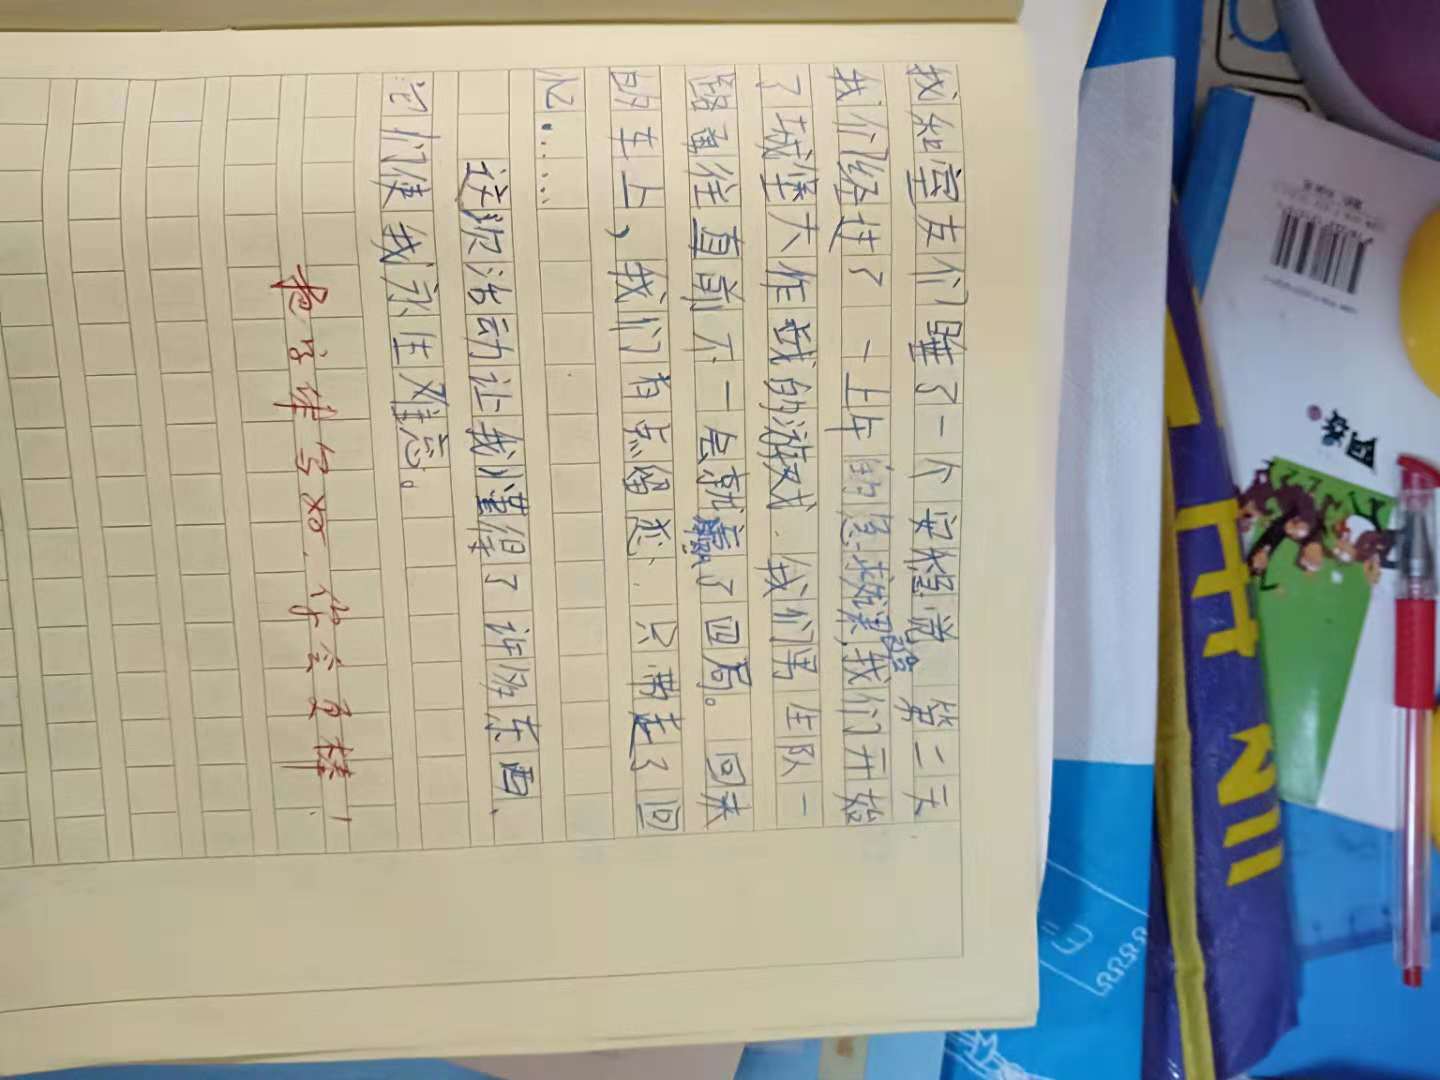 我和室友们睡了一个安稳觉。第二天
我们经过了一上午的急救课,我们开始
了城堡大作战的游戏.我们男生队一
路勇往直前不一会就赢了四局。回来
的车上,我们有点留恋.只带走了回
忆……
这次活动让我懂得了许多东西、
它们使我永生难忘。
把字练写好,你会更棒!